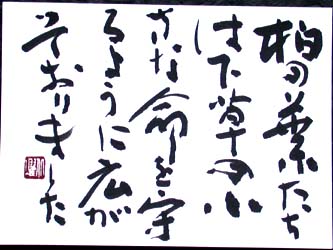 柏の葉たち
は下草の小
さな命を守
るように広が
っておりました